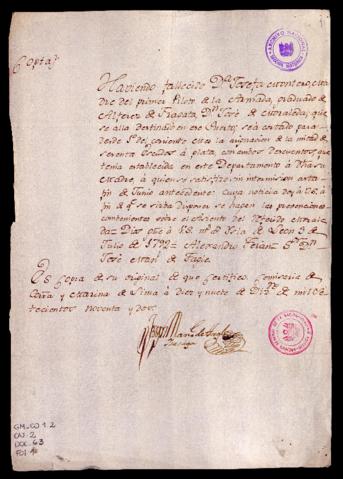 Haviendo fallecido Dª Teresa Montero, ma
dre del primer Piloto de la Armada, graduado de
Alferez de Fragata Dn. José de Moraleda, que
se alla destinado en ese Puerto; sera cortado para
desde 1º de corriente mes la asignacion de la mitad de
setenta Escudos de plata, con ambos descuentos, que
tenia establecida en este Departamento à dha su
Madre, à quien se satisfizo sin intermision asta
fin de Junio antecedente: cuya noticia doy à V.S. à
fin de qe. se sirva disponer se hagan las prevenciones
combenientes sobre el asiento del referido Morale
da= Dios gue à V.S. ms. as. Isla de Leon 3 de
Julio de 1792= Alexandro
José Manl. de Tagle.
Es Copia de su original de que certifico. Comisaria de
Grra y Marina de Lima à diez y nueve de Dizre. de mil se
tecientos noventa y dos.
GM-CO 1.2
CAJ. 2
DOC. 63
FOL. 1